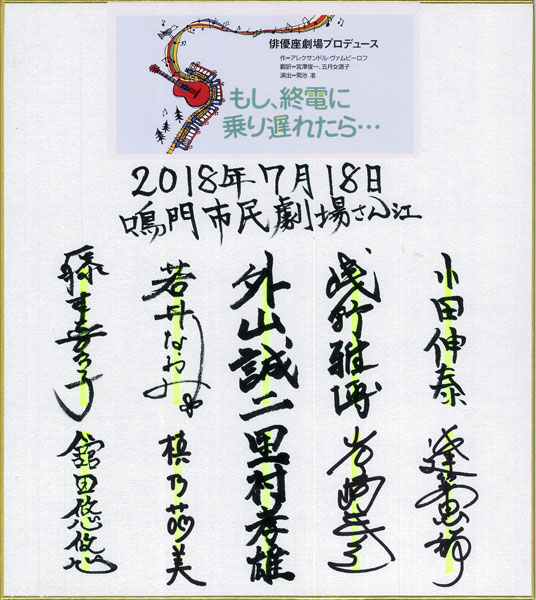 俳優座劇場プロデュース
作=アレクサンドル・ヴァムピーロフ
翻訳=宮澤俊一、五月女道子
演出=菊池 准
もし、終電に
乗り遅れたら…
2018年7月18日
鳴門市民劇場さん江
小田伸泰
逢笠恵祐
浅野雅博
外山誠二
里村孝雄
若井なおみ
槙乃萌美
舘田悠悠